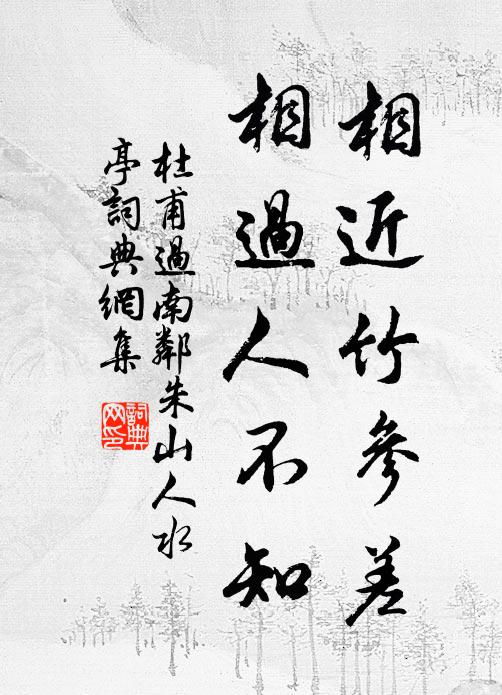 相近竹參差
相過人不知
杜甫過南鄰朱山人水
亭詞典網集
詞典
网印